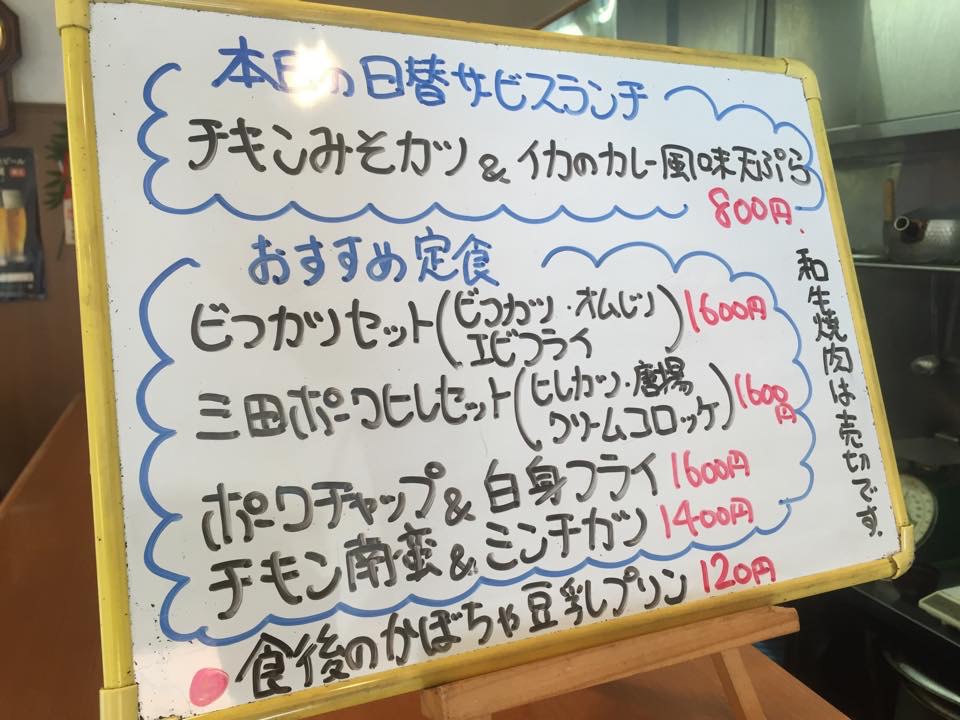 本日の日替サービスランチ
チキンみそカツ & イカのカレー風味天ぷら
800円.
おすすめ定食
ビフカツセット(ビフカツ・オムレツ
エビフライ) 1600円
三田ポークヒレセット(ヒレカツ・唐揚
クリームコロッケ) 1600円
ポークチャップ & 白身フライ 1600円
チキン南蛮 & ミンチカツ 1400円
食後のかぼちゃ豆乳プリン 120円
和牛焼肉は売切です.